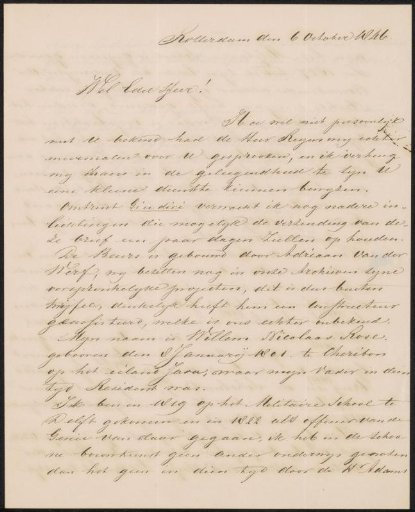 Rotterdam den 6 October 1846
Wel Edele Heer!
Hoe wel niet persoonlijk
met U bekend had de Heer mij echter
meermalen over U gesproken, en ik verheug
mij thans in de gelegenheid te zijn U
eene kleine dienst te kunnen bewijzen.
Omtrent verwacht ik nog nadere in-
lichtingen die mogelijk de verzending van de-
ze brief een paar dagen zullen ophouden.
De Beurs is gebouwd door Adriaan van der
Werf; wij bezitten nog in onze Archieven zijne
oorspronkelijke projecten, dit is dus buiten
twijfel, denkelijk heeft hem een Constructeur
geassisteerd, welke is ons echter onbekend.
Mijn naam is Willem Nicolaas Rose
geboren den Januarij 1801. te Cheribon
op het eiland Java, waar mijn Vader in dien
tijd Resident was.
Ik ben in 1819 op het Militaire School te
Delft gekomen en in 1822 als officier van de
Genie van daar gegaan; ik heb in de schoo-
ne bouwkunst geen ander onderwijs genoten
dan het geen in dien tijd door de Hr